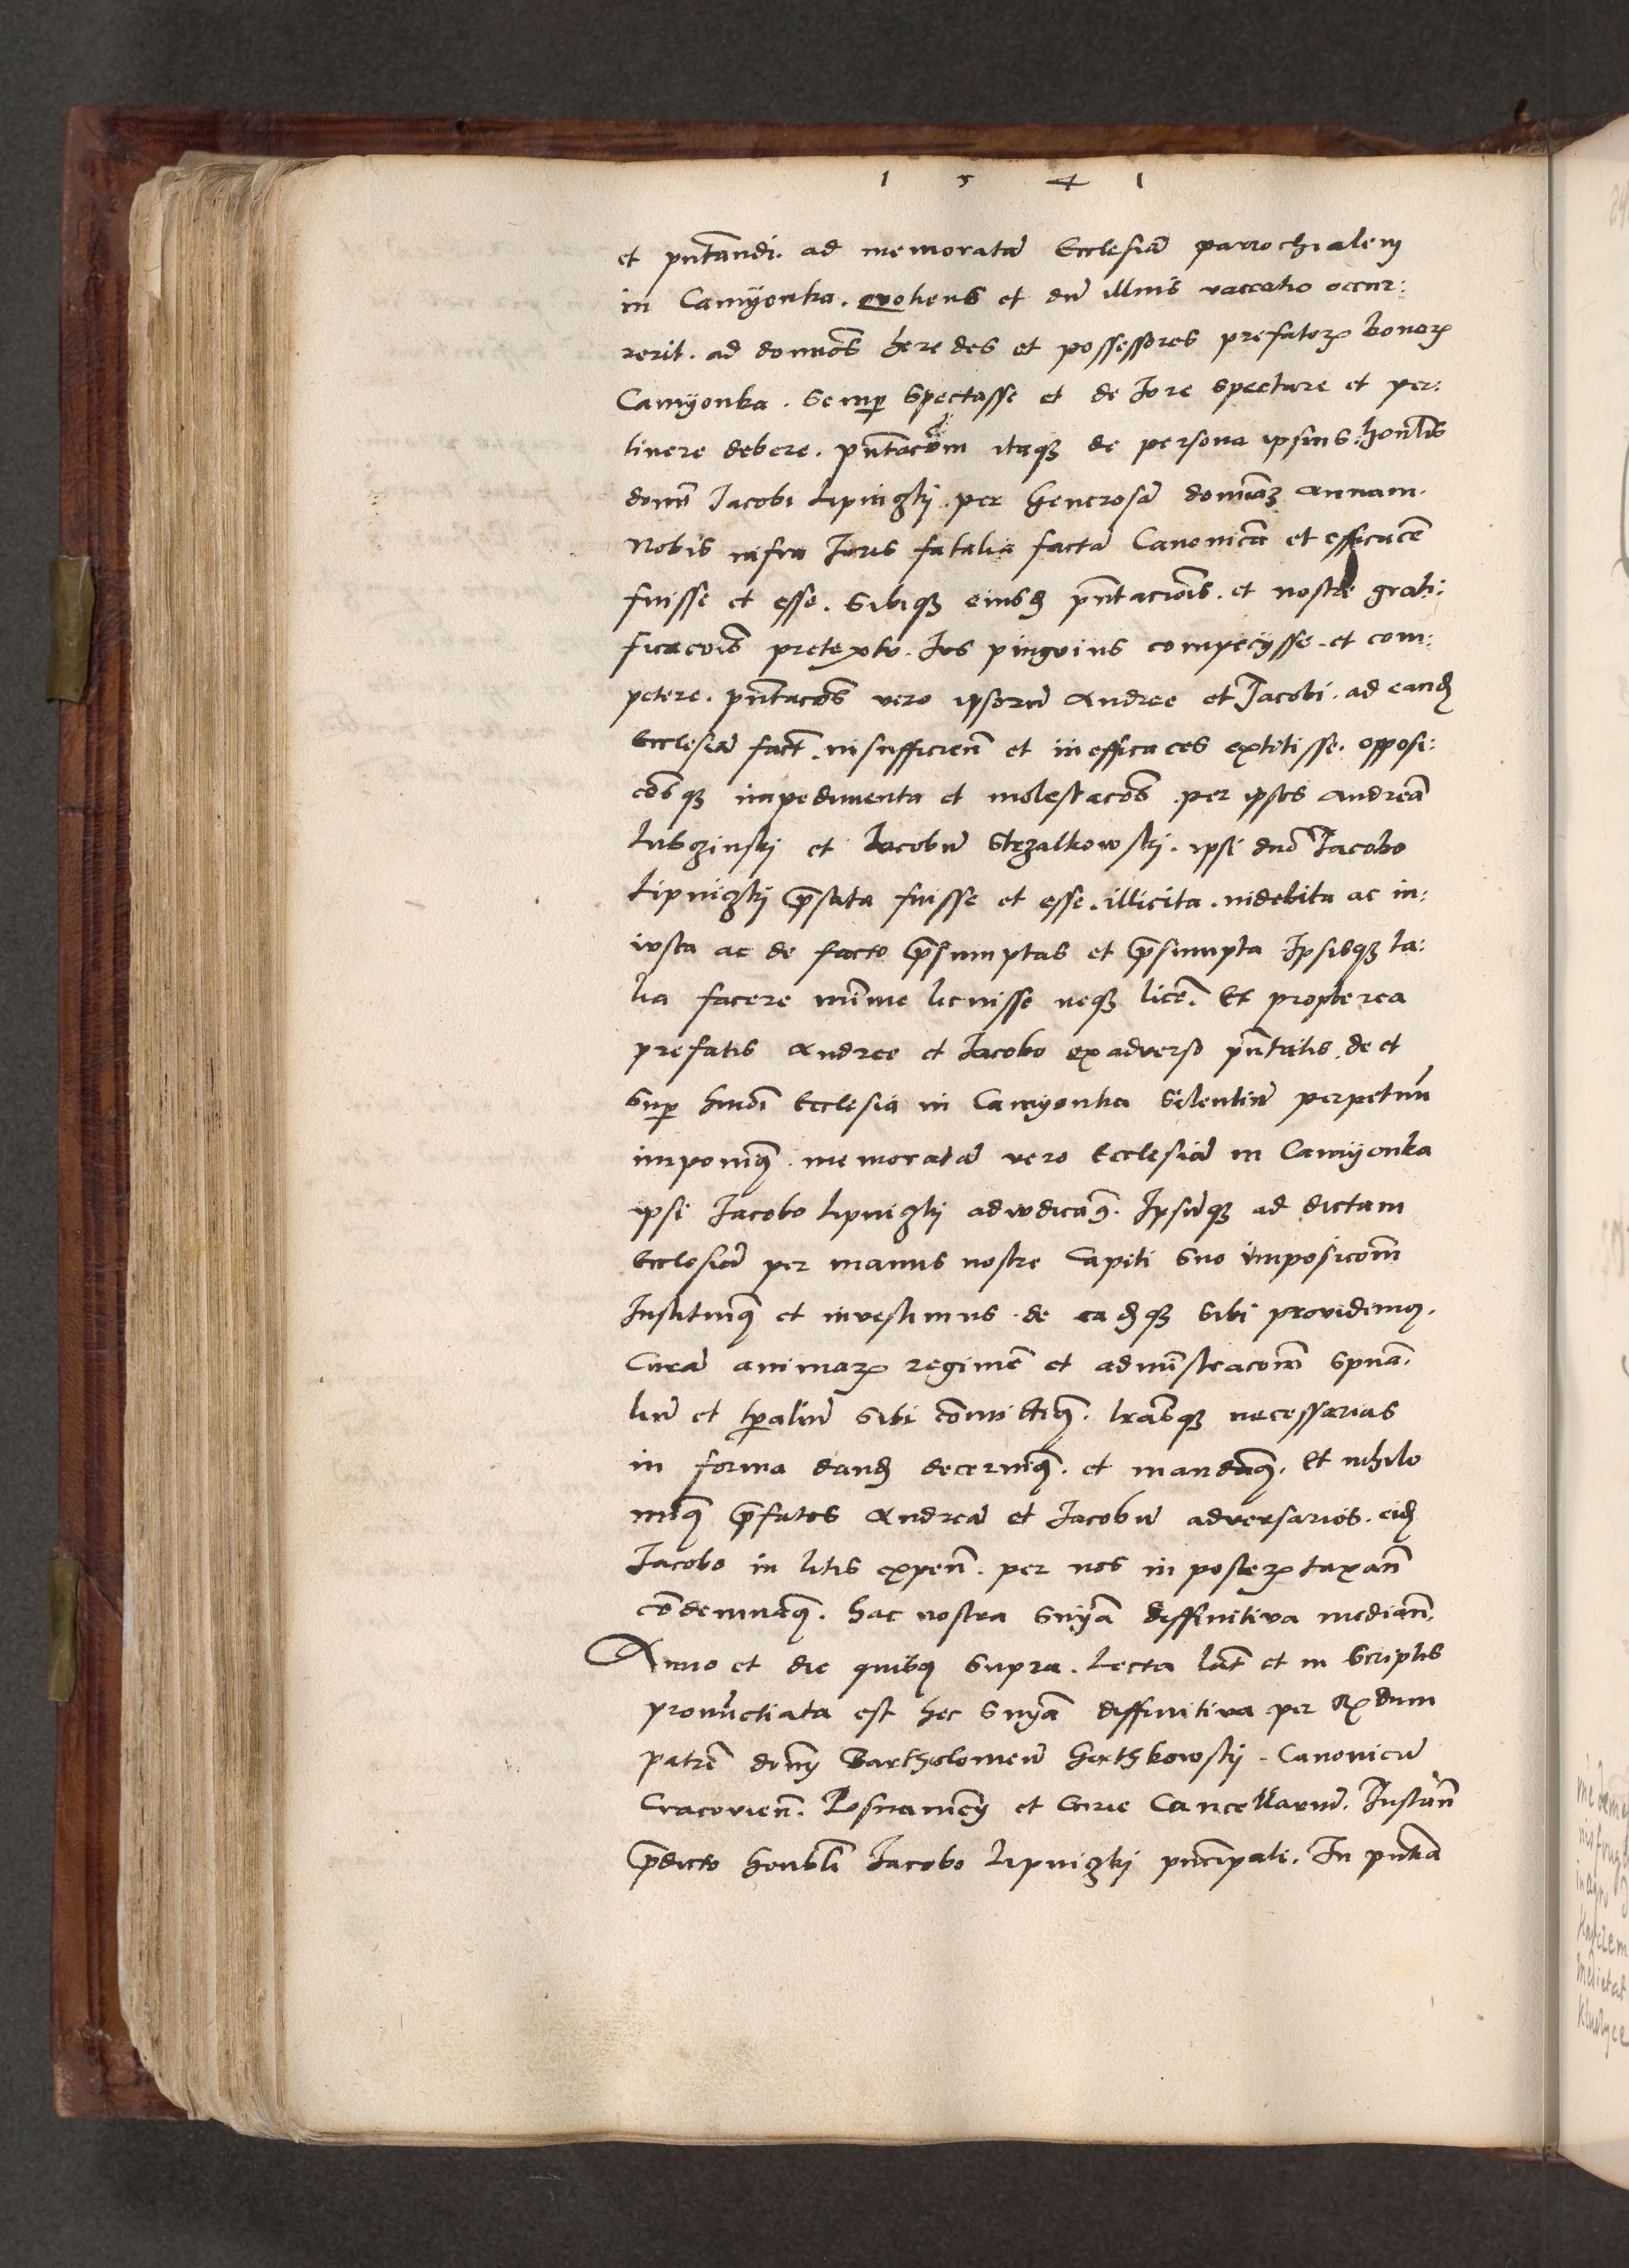 1 5 4 1
et pñtandi. ad memoratã Ecclesiã parrochialem
in Camyonka. quotiens et dũ illius vaccatio occur:
rerit. ad dominos heredes et possessores prefatorꝝ bonorꝝ
Camyonka. Semꝑ spectasse et de Iure spectare et per:
tinere debere. pñtacõm itaqꝫ de persona ipsius honlis
domĩ Iacobi Lipniczkj. per Generosã dominã Annam.
Nobis infra Iuris fatalia factã Canonicã et efficacẽ
fuisse et esse. Sibiqꝫ eiusd pñtacionis. et nostre grati:
ficacõis pretextu. Ius pinguius competysse. et com:
petere. pñtacões vero ipsorũ Andree et Iacobi. ad eand
Ecclesiã fact. insufficien et inefficaces extitisse. opposi:
cões qꝫ impedimenta et molestacões per ipsos Andreã
Lubzinskj et Iacobũ Strzalkowskj. ipsi dño Iacobo
Lipniczkj p̃stita fuisse et esse. illicita. indebita ac in:
iusta ac de facto p̃sumptas et p̃sumpta Ipsisqꝫ ta:
lia facere minime licuisse neqꝫ licẽ. Et propterea
prefatis Andree et Iacobo ex adverso pñtatis. de et
Suꝑ hmõi Ecclesia in Camyonka Silentiũ perpetuũ
imponimꝯ. memoratã vero Ecclesiã in Camyonka
ipsi Iacobo Lipniczkj adiudicamꝯ. Ipsũqꝫ ad dictam
Ecclesiã per manus nostre Capiti suo imposicõm
Instituimꝯ et investimus. de eadqꝫ Sibi providemꝯ.
Curã animarꝝ regimẽ et administracõm spũa.
liũ et tp̃aliũ Sibi cõmittimꝯ. lrãsqꝫ necessarias
in forma dand decernimꝯ. et mandamꝯ. Et nihilo
minꝯ p̃fatos Andreã et Iacobũ adversarios. eid
Iacobo in litis expeñ. per nos in posterꝝ taxañ
cõdemnamꝯ. hac nostra Snỹa diffinitiva mediañ.
Anno et die quibꝯ supra. Lecta lat et in Scriptis
pronũctiata est hec Snỹa diffinitiva per Rdum
patrẽ domĩ Bartholomeũ Ganthkowskj. Canonicũ
Cracovieñ. Posnanieñ et Curie Cancellariũ. Instañ
p̃dicto honbli Iacobo Lipniczkj pñcipali. In pñtia